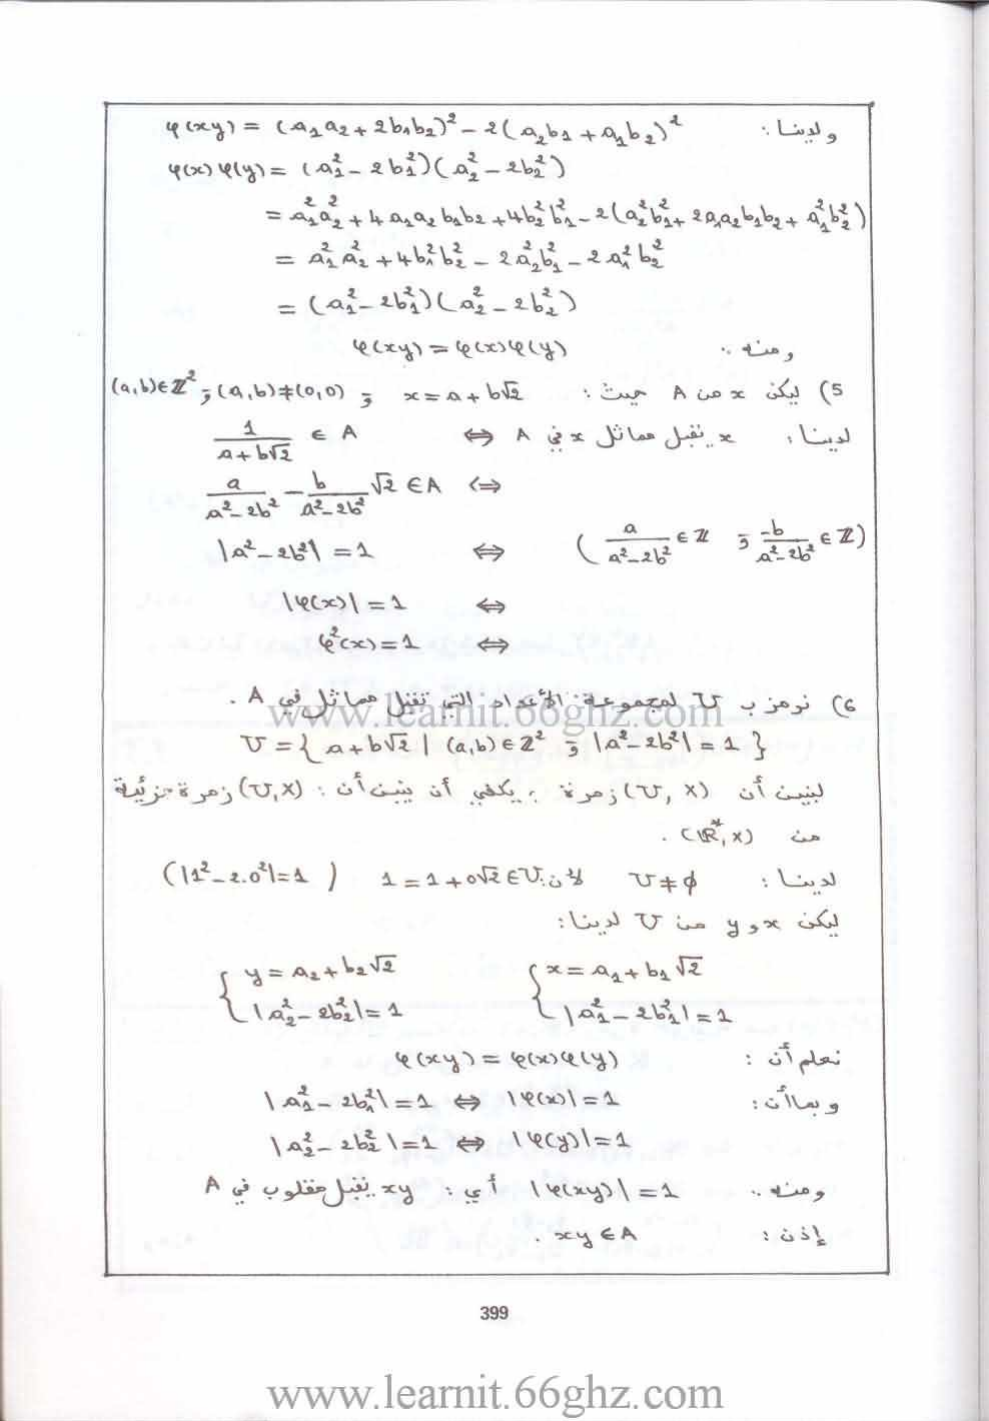 ولدينا : φ(xy) = (a₁a₂ + 2b₁b₂)² - 2(a₂b₁ + a₁b₂)²
φ(x)φ(y) = (a₁² - 2b₁²)(a₂² - 2b₂²)
= a₁²a₂² + 4a₁a₂b₁b₂ + 4b₂²b₁² - 2(a₂²b₁² + 2a₁a₂b₁b₂ + a₁²b₂²)
= a₁²a₂² + 4b₁²b₂² - 2a₂²b₁² - 2a₁²b₂²
= (a₁² - 2b₁²)(a₂² - 2b₂²)
ومنه : φ(xy) = φ(x)φ(y)
5) ليكن x من A حيث : x = a + b√2 و (a,b) ≠ (0,0) و (a,b) ∈ ℤ²
لدينا : x يقبل مماثل x في A ⇔ 1/(a + b√2) ∈ A
⇔ a/(a² - 2b²) - b/(a² - 2b²) √2 ∈ A
(a/(a² - 2b²) ∈ ℤ و -b/(a² - 2b²) ∈ ℤ) ⇔ |a² - 2b²| = 1
⇔ |φ(x)| = 1
⇔ φ²(x) = 1
6) نرمز ب U لمجموعة الأعداد التي تقبل مماثل في A .
www.learnit.66ghz.com
U = { a + b√2 | (a,b) ∈ ℤ² و |a² - 2b²| = 1 }
لنبين أن (U, ×) زمرة : يكفي أن نبين أن : (U, ×) زمرة جزئية
من (ℝ*, ×) .
لدينا : U ≠ ϕ لأن : 1 = 1 + 0√2 ∈ U (|1² - 2.0²| = 1)
ليكن x و y من U لدينا :
{ x = a₁ + b₁√2 { y = a₂ + b₂√2
|a₁² - 2b₁²| = 1 |a₂² - 2b₂²| = 1
نعلم أن : φ(xy) = φ(x)φ(y)
وبما أن : |φ(x)| = 1 ⇔ |a₁² - 2b₁²| = 1
|φ(y)| = 1 ⇔ |a₂² - 2b₂²| = 1
ومنه : |φ(xy)| = 1 أي : xy يقبل مقلوب في A
إذن : xy ∈ A .
399
www.learnit.66ghz.com